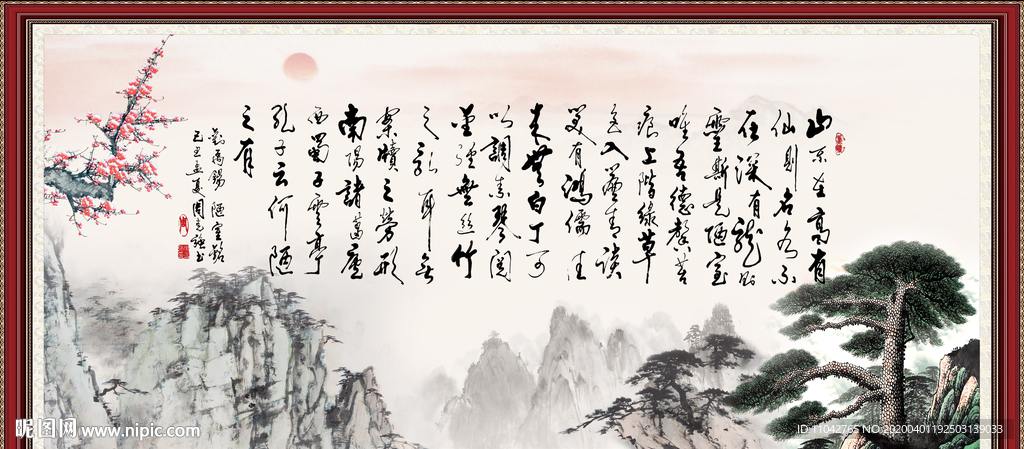 山不在高有
仙則名水不
在深有龍則
靈斯是陋室
唯吾德馨苔
痕上階綠草
色入簾青談
笑有鴻儒往
來無白丁可
以調素琴閱
金經無絲竹
之亂耳無
案牘之勞形
南陽諸葛廬
西蜀子雲亭
孔子云何陋
之有
劉禹錫 陋室銘
昵图网 www.nipic.com
ID:11042765 NO:20200401192503139033